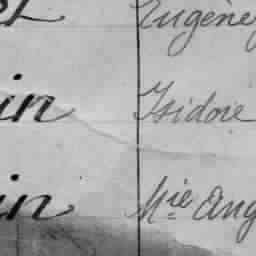 Eugène
in Isidore
in Mie Ang